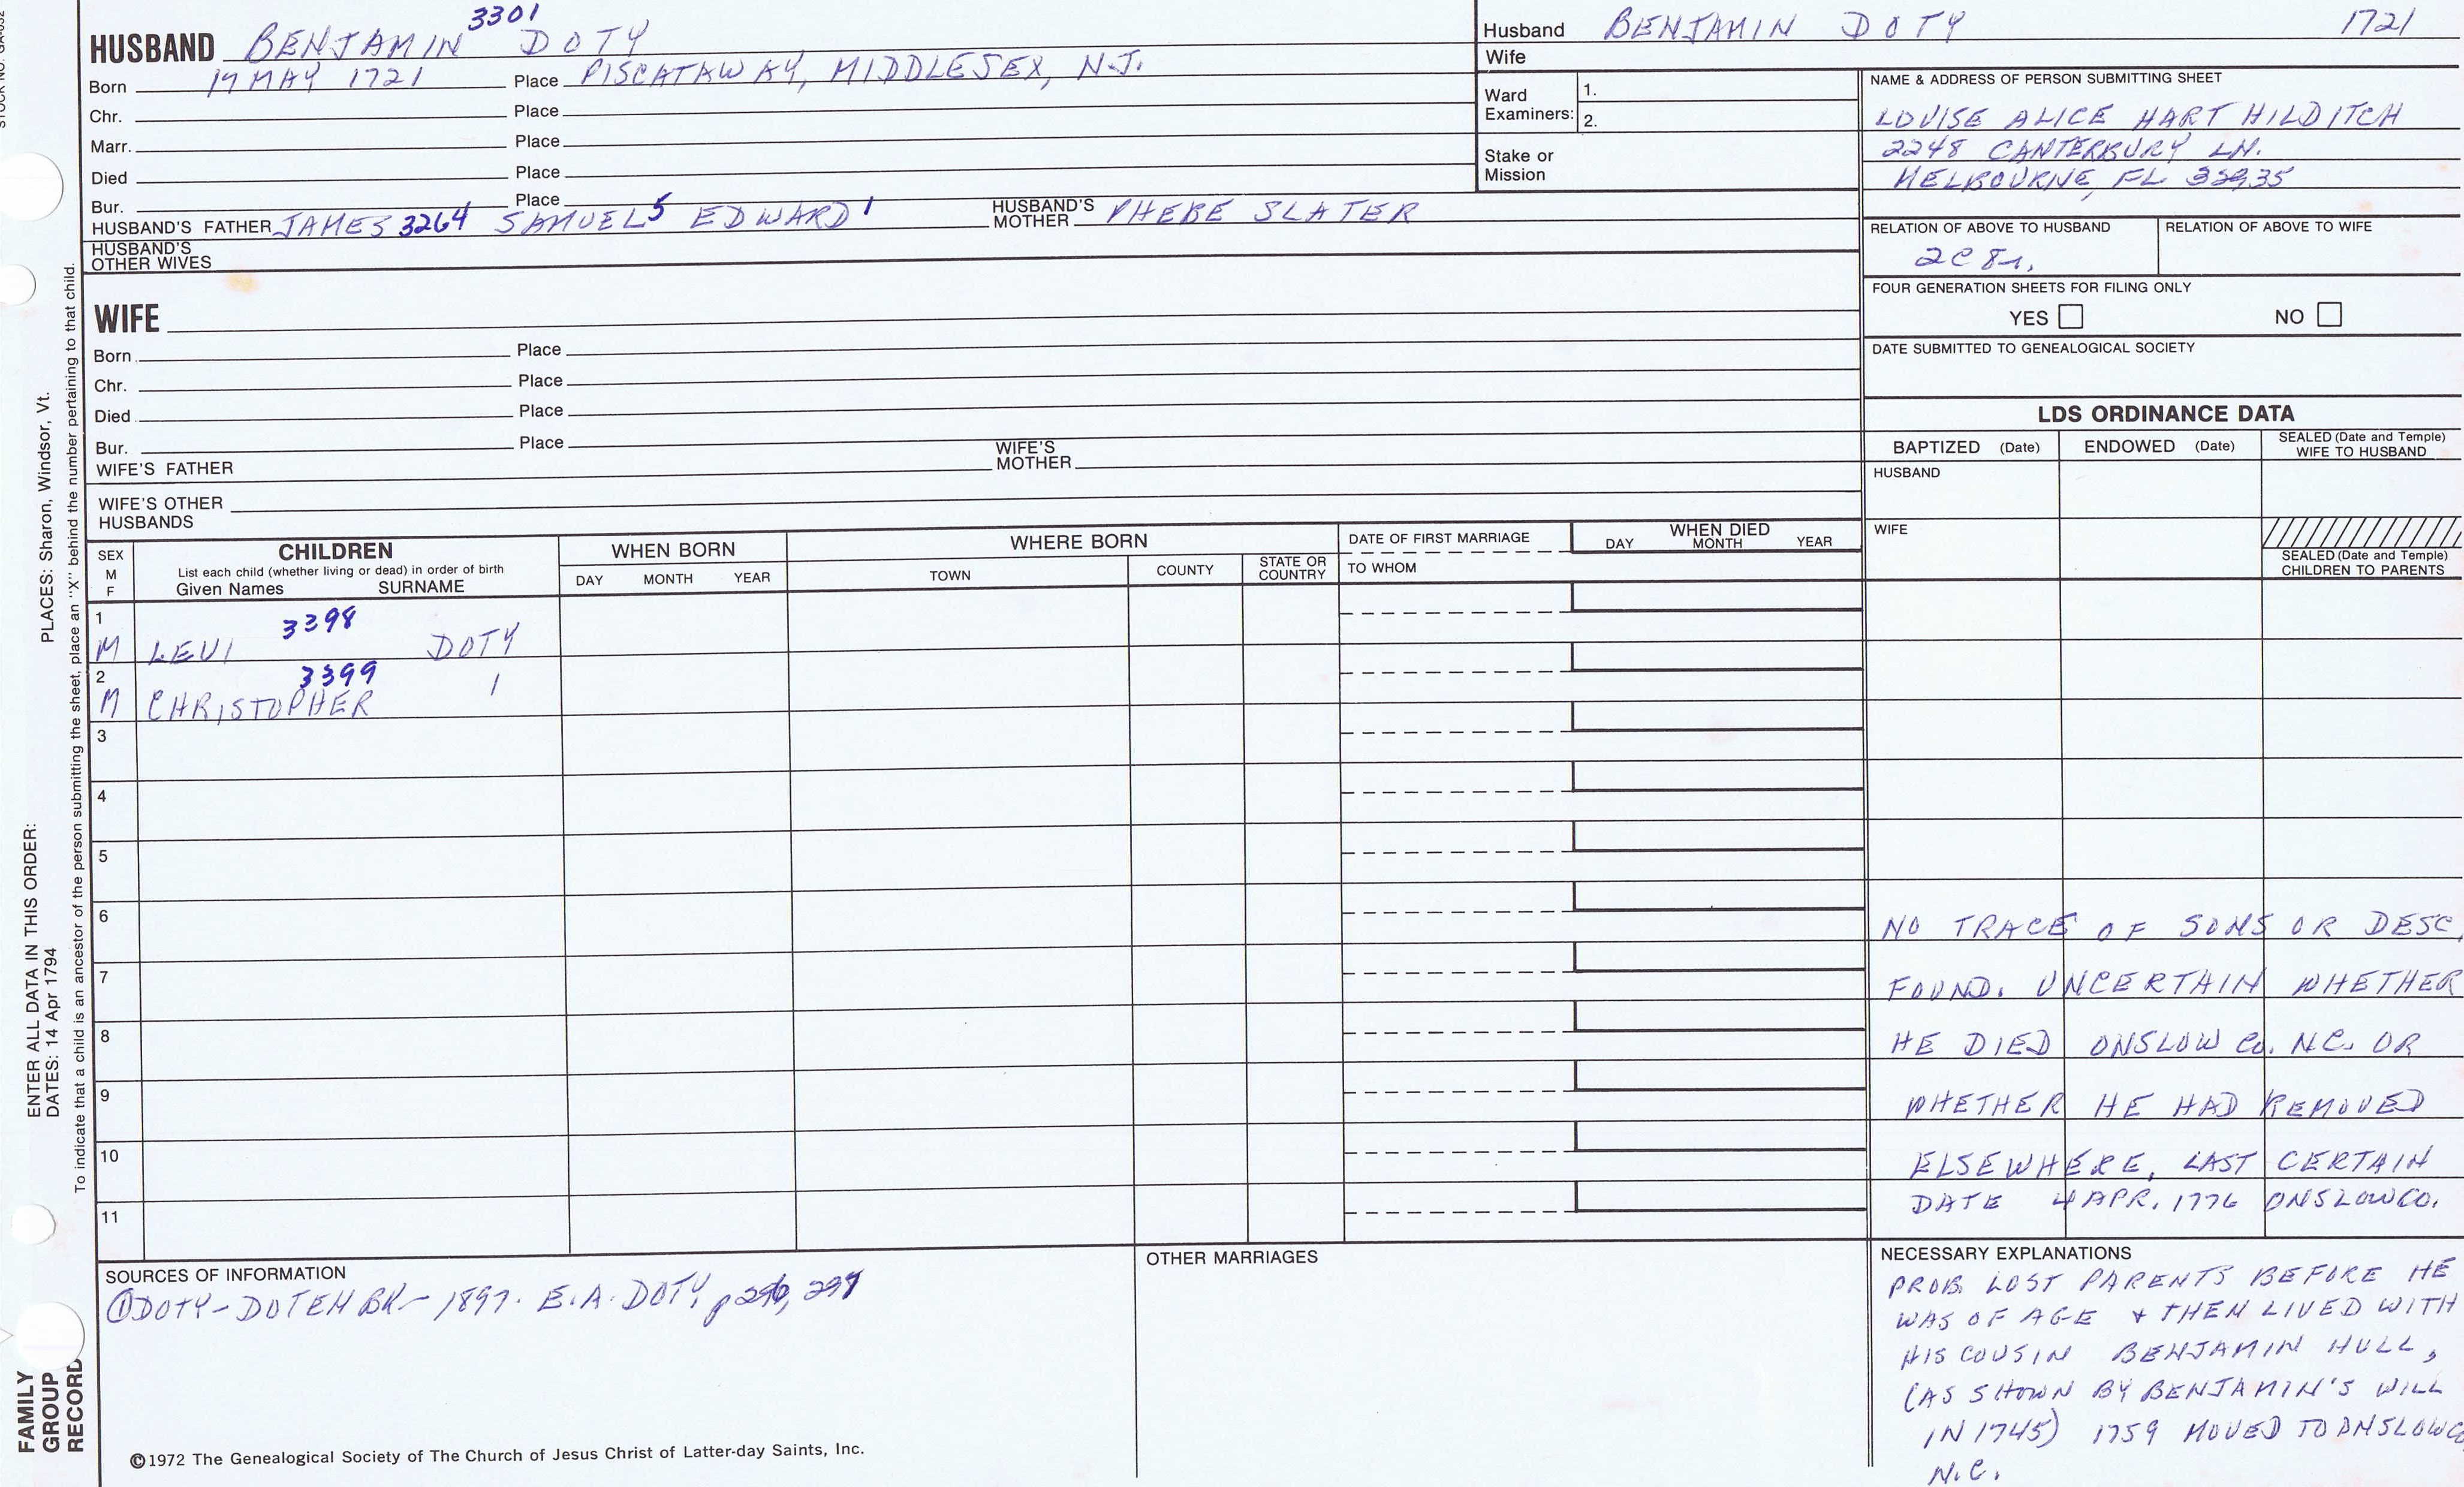 3301
HUSBAND BENJAMIN DOTY
Born 17 MAY 1721 Place PISCATAWAY, MIDDLESEX, N.J.
Chr. Place
Marr. Place
Died Place
Bur. Place
HUSBAND'S FATHER JAMES 3264 SAMUEL 5 EDWARD 1 HUSBAND'S MOTHER PHEBE SLATER
HUSBAND'S
OTHER WIVES
Husband BENJAMIN DOTY 1721
Wife
Ward
Examiners:
1.
2.
Stake or
Mission
NAME & ADDRESS OF PERSON SUBMITTING SHEET
LOUISE ALICE HART HILDITCH
2248 CANTERBURY LN.
MELBOURNE, FL 32935
RELATION OF ABOVE TO HUSBAND RELATION OF ABOVE TO WIFE
2C 8r.
FOUR GENERATION SHEETS FOR FILING ONLY
YES NO
DATE SUBMITTED TO GENEALOGICAL SOCIETY
WIFE
Born Place
Chr. Place
Died Place
Bur. Place
WIFE'S FATHER WIFE'S MOTHER
WIFE'S OTHER
HUSBANDS
LDS ORDINANCE DATA
BAPTIZED (Date) ENDOWED (Date) SEALED (Date and Temple)
WIFE TO HUSBAND
HUSBAND
WIFE
SEALED (Date and Temple)
CHILDREN TO PARENTS
SEX
M
F
CHILDREN
List each child (whether living or dead) in order of birth
Given Names SURNAME
WHEN BORN
DAY MONTH YEAR
WHERE BORN
TOWN COUNTY STATE OR COUNTRY
DATE OF FIRST MARRIAGE
TO WHOM
WHEN DIED
DAY MONTH YEAR
1
3398
M LEVI DOTY
2
3399
M CHRISTOPHER
3
4
5
6
7
8
9
10
11
NO TRACE OF SONS OR DESC.
FOUND. UNCERTAIN WHETHER
HE DIED ONSLOW Co. N.C. OR
WHETHER HE HAD REMOVED
ELSEWHERE, LAST CERTAIN
DATE 4 APR. 1776 ONSLOW CO.
SOURCES OF INFORMATION
① DOTY-DOTEN BK- 1897. E.A. DOTY, p 296, 297
OTHER MARRIAGES
NECESSARY EXPLANATIONS
PROB. LOST PARENTS BEFORE HE
WAS OF AGE & THEN LIVED WITH
HIS COUSIN BENJAMIN HULL,
(AS SHOWN BY BENJAMIN'S WILL
IN 1745) 1759 MOVED TO ONSLOW Co
N.C.
©1972 The Genealogical Society of The Church of Jesus Christ of Latter-day Saints, Inc.
ENTER ALL DATA IN THIS ORDER:
DATES: 14 Apr 1794
PLACES: Sharon, Windsor, Vt.
To indicate that a child is an ancestor of the person submitting the sheet, place an "X" behind the number pertaining to that child.
FAMILY
GROUP
RECORD